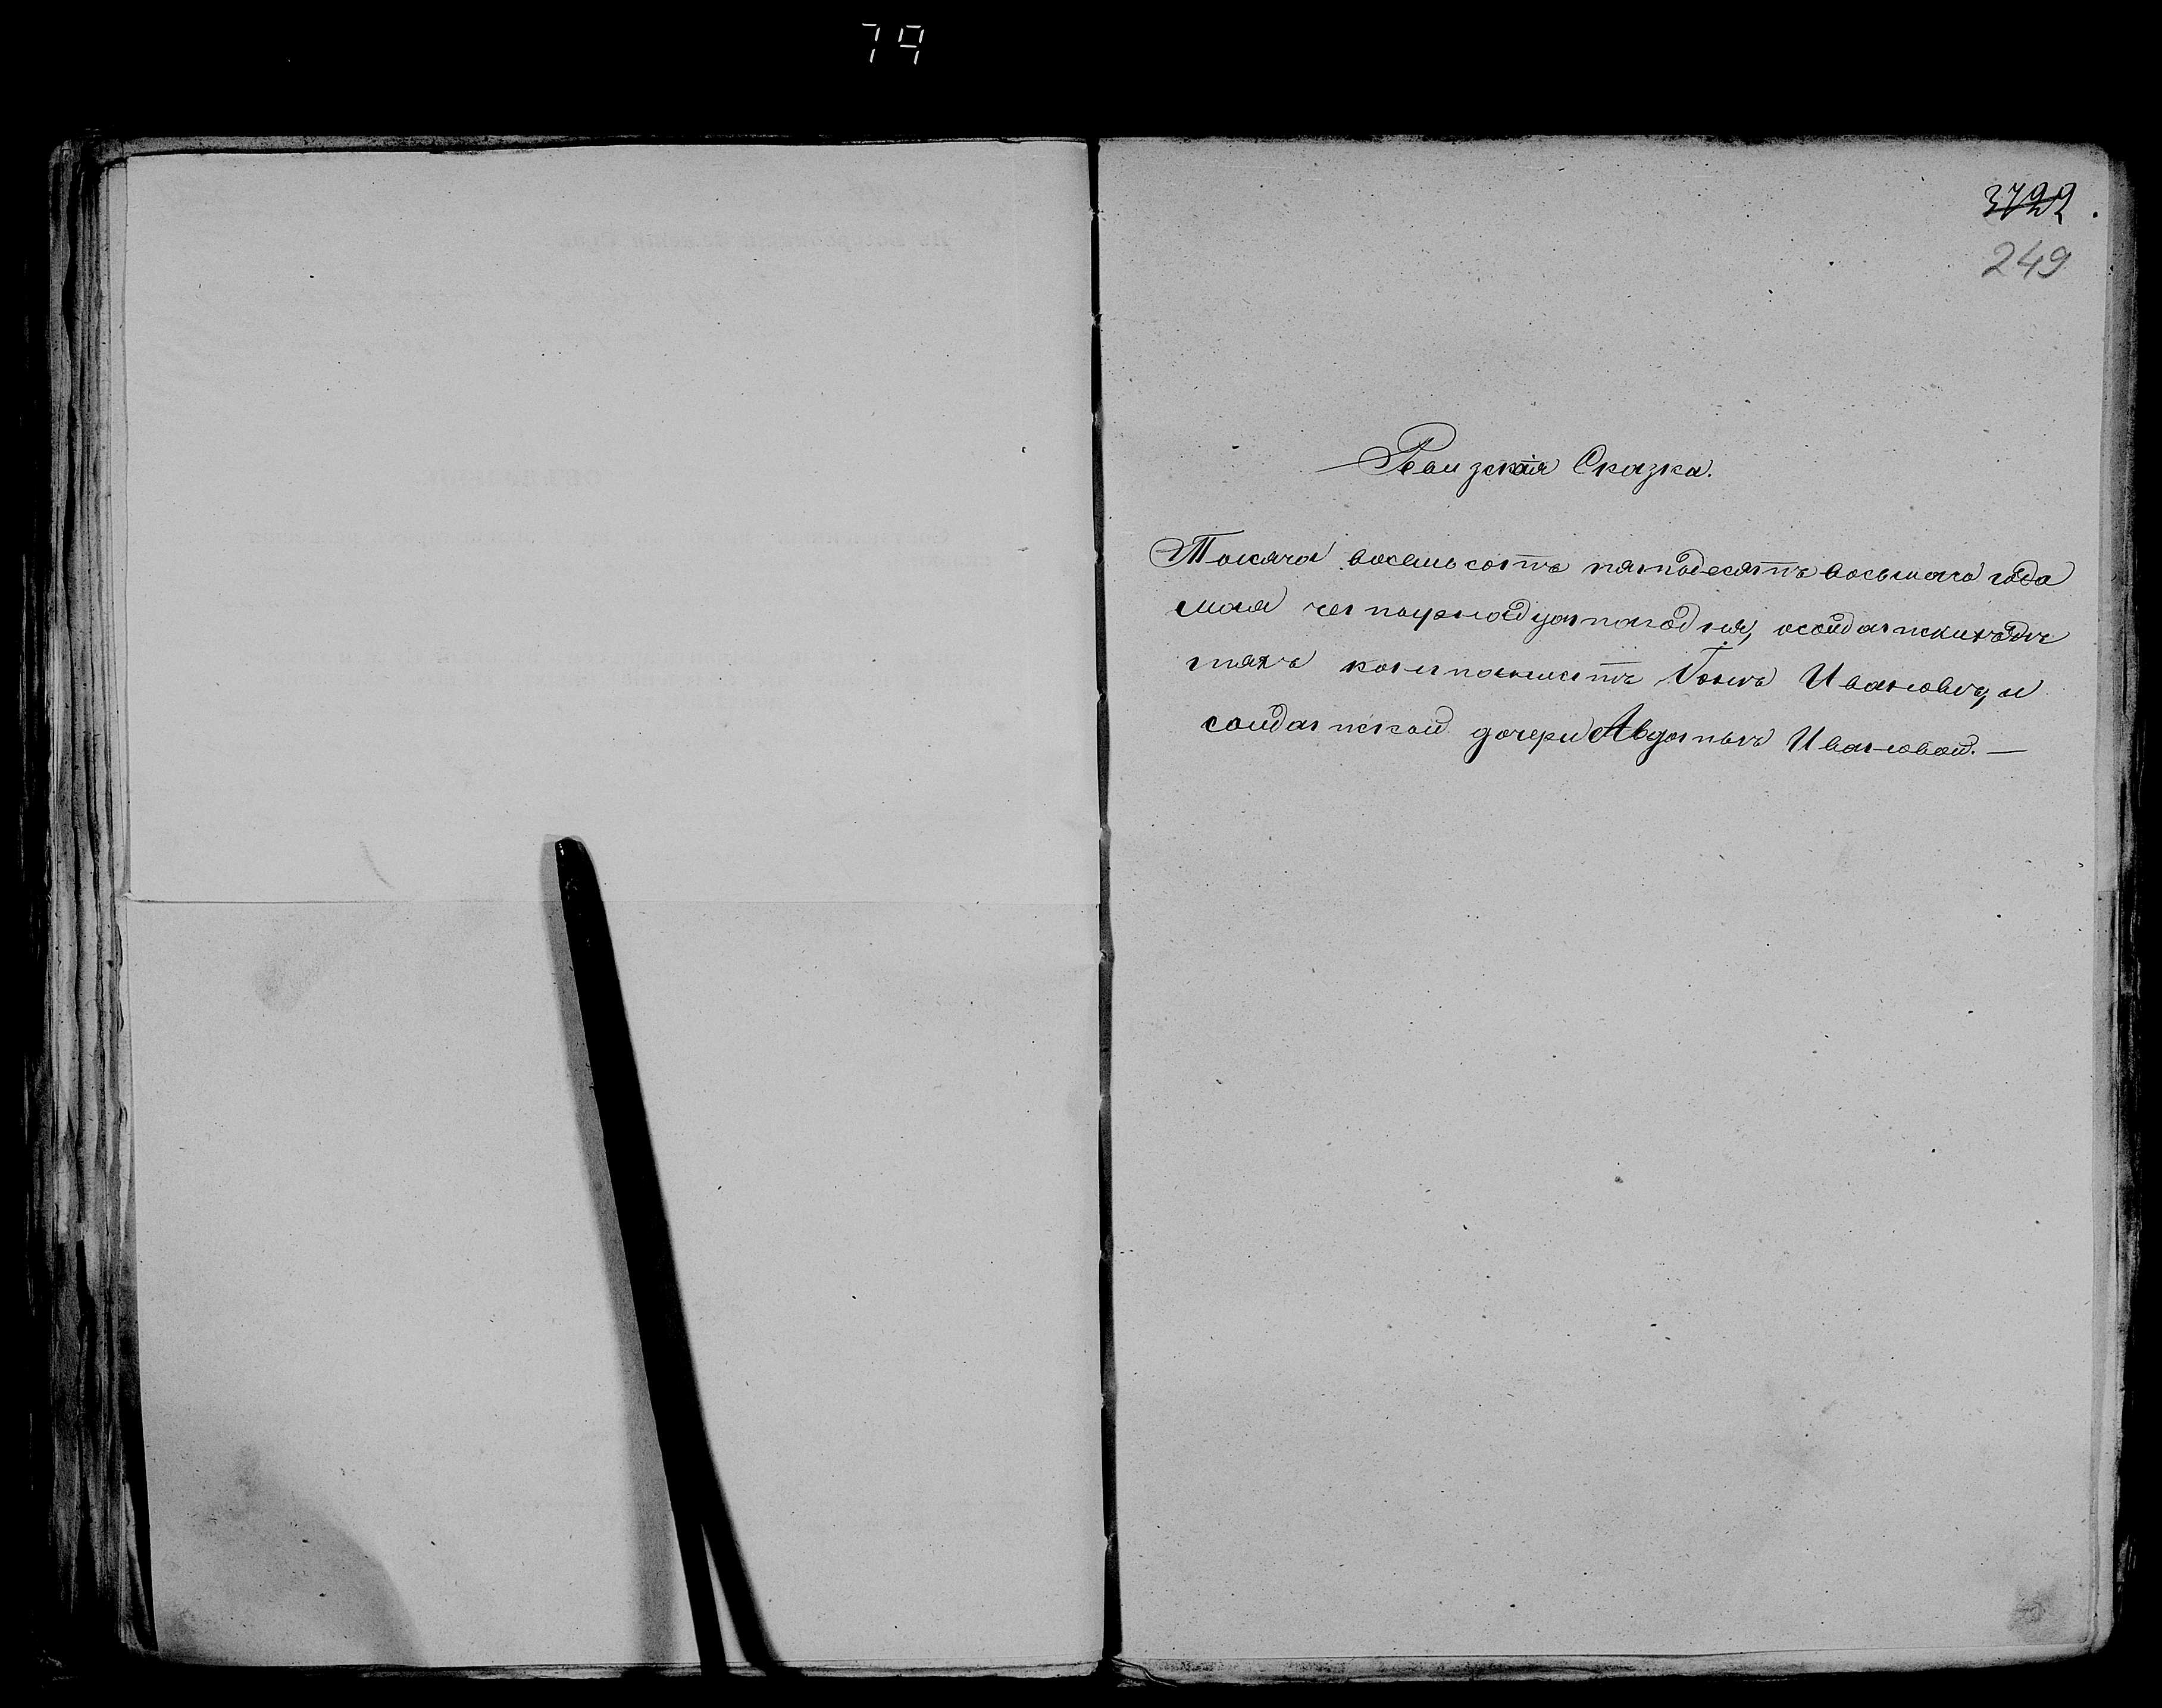 79
3722.
249
Ревизская Сказка.
Тысяча восемьсотъ пятьдесятъ восьмаго года
мая четырнадцатаго дня, о солдатскихъ дѣ
тяхъ Ивановѣ, и
солдатской дочери Авдотьѣ Ивановой. —